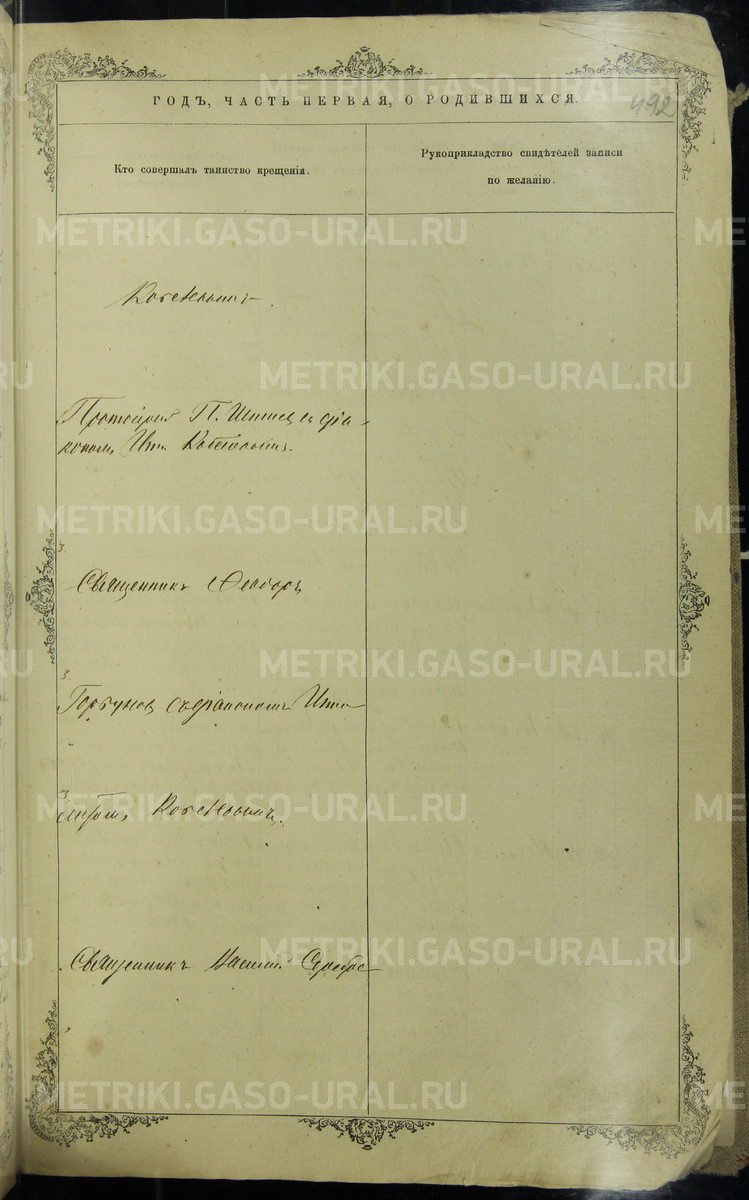 ГОДЪ, ЧАСТЬ ПЕРВАЯ, О РОДИВШИХСЯ.
492
Кто совершалъ таинство крещенія.
Рукоприкладство свидѣтелей записи
по желанію.
Протоіерей П. с діа-
кономъ Ип.
Священникъ Ѳеодоръ
Горбуновъ съ діакономъ Иппо
литомъ
Священникъ Василій Серебре
METRIKI.GASO-URAL.RU